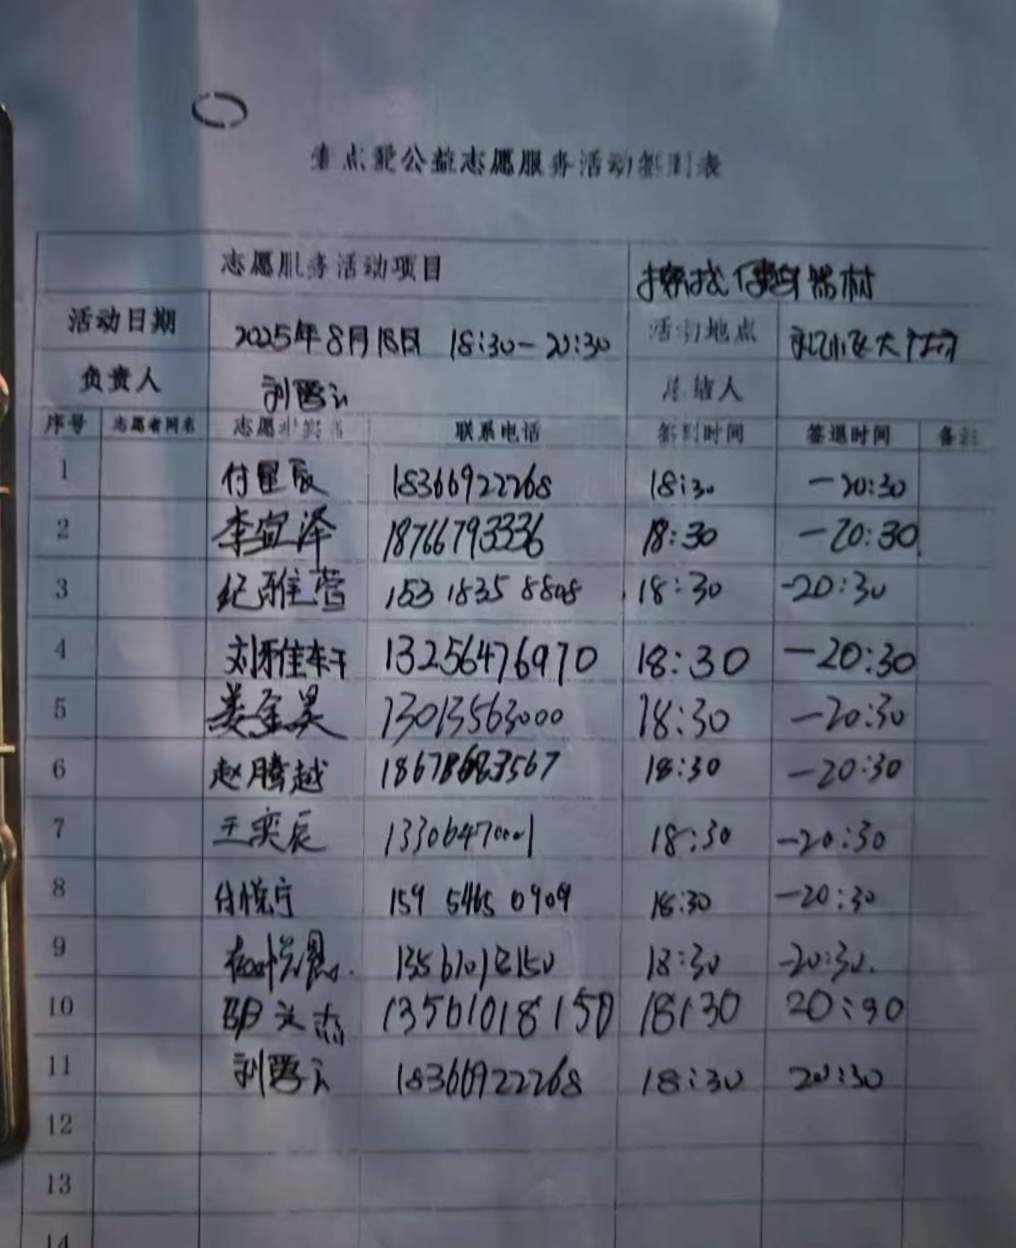 点爱公益志愿服务活动签到表
志愿服务活动项目 擦找健身器材
活动日期 2025年8月18日 18:30-20:30 活动地点
负责人 总结人
序号 志愿者网名 志愿者实名 联系电话 签到时间 签退时间 备注
1 付星辰 18366922268 18:30 -20:30
2 李宜泽 18766793336 18:30 -20:30
3 纪雅萱 153 1835 8808 18:30 -20:30
4 刘雅轩 13256476970 18:30 -20:30
5 姜金昊 13013563000 18:30 -20:30
6 赵腾越 18678683567 18:30 -20:30
7 王奕辰 13306470001 18:30 -20:30
8 付悦宁 159 5465 0909 18:30 -20:30
9 18:30 -20:30.
10 13561018150 18:30 20:30
11 18366922268 18:30 20:30
12
13
14